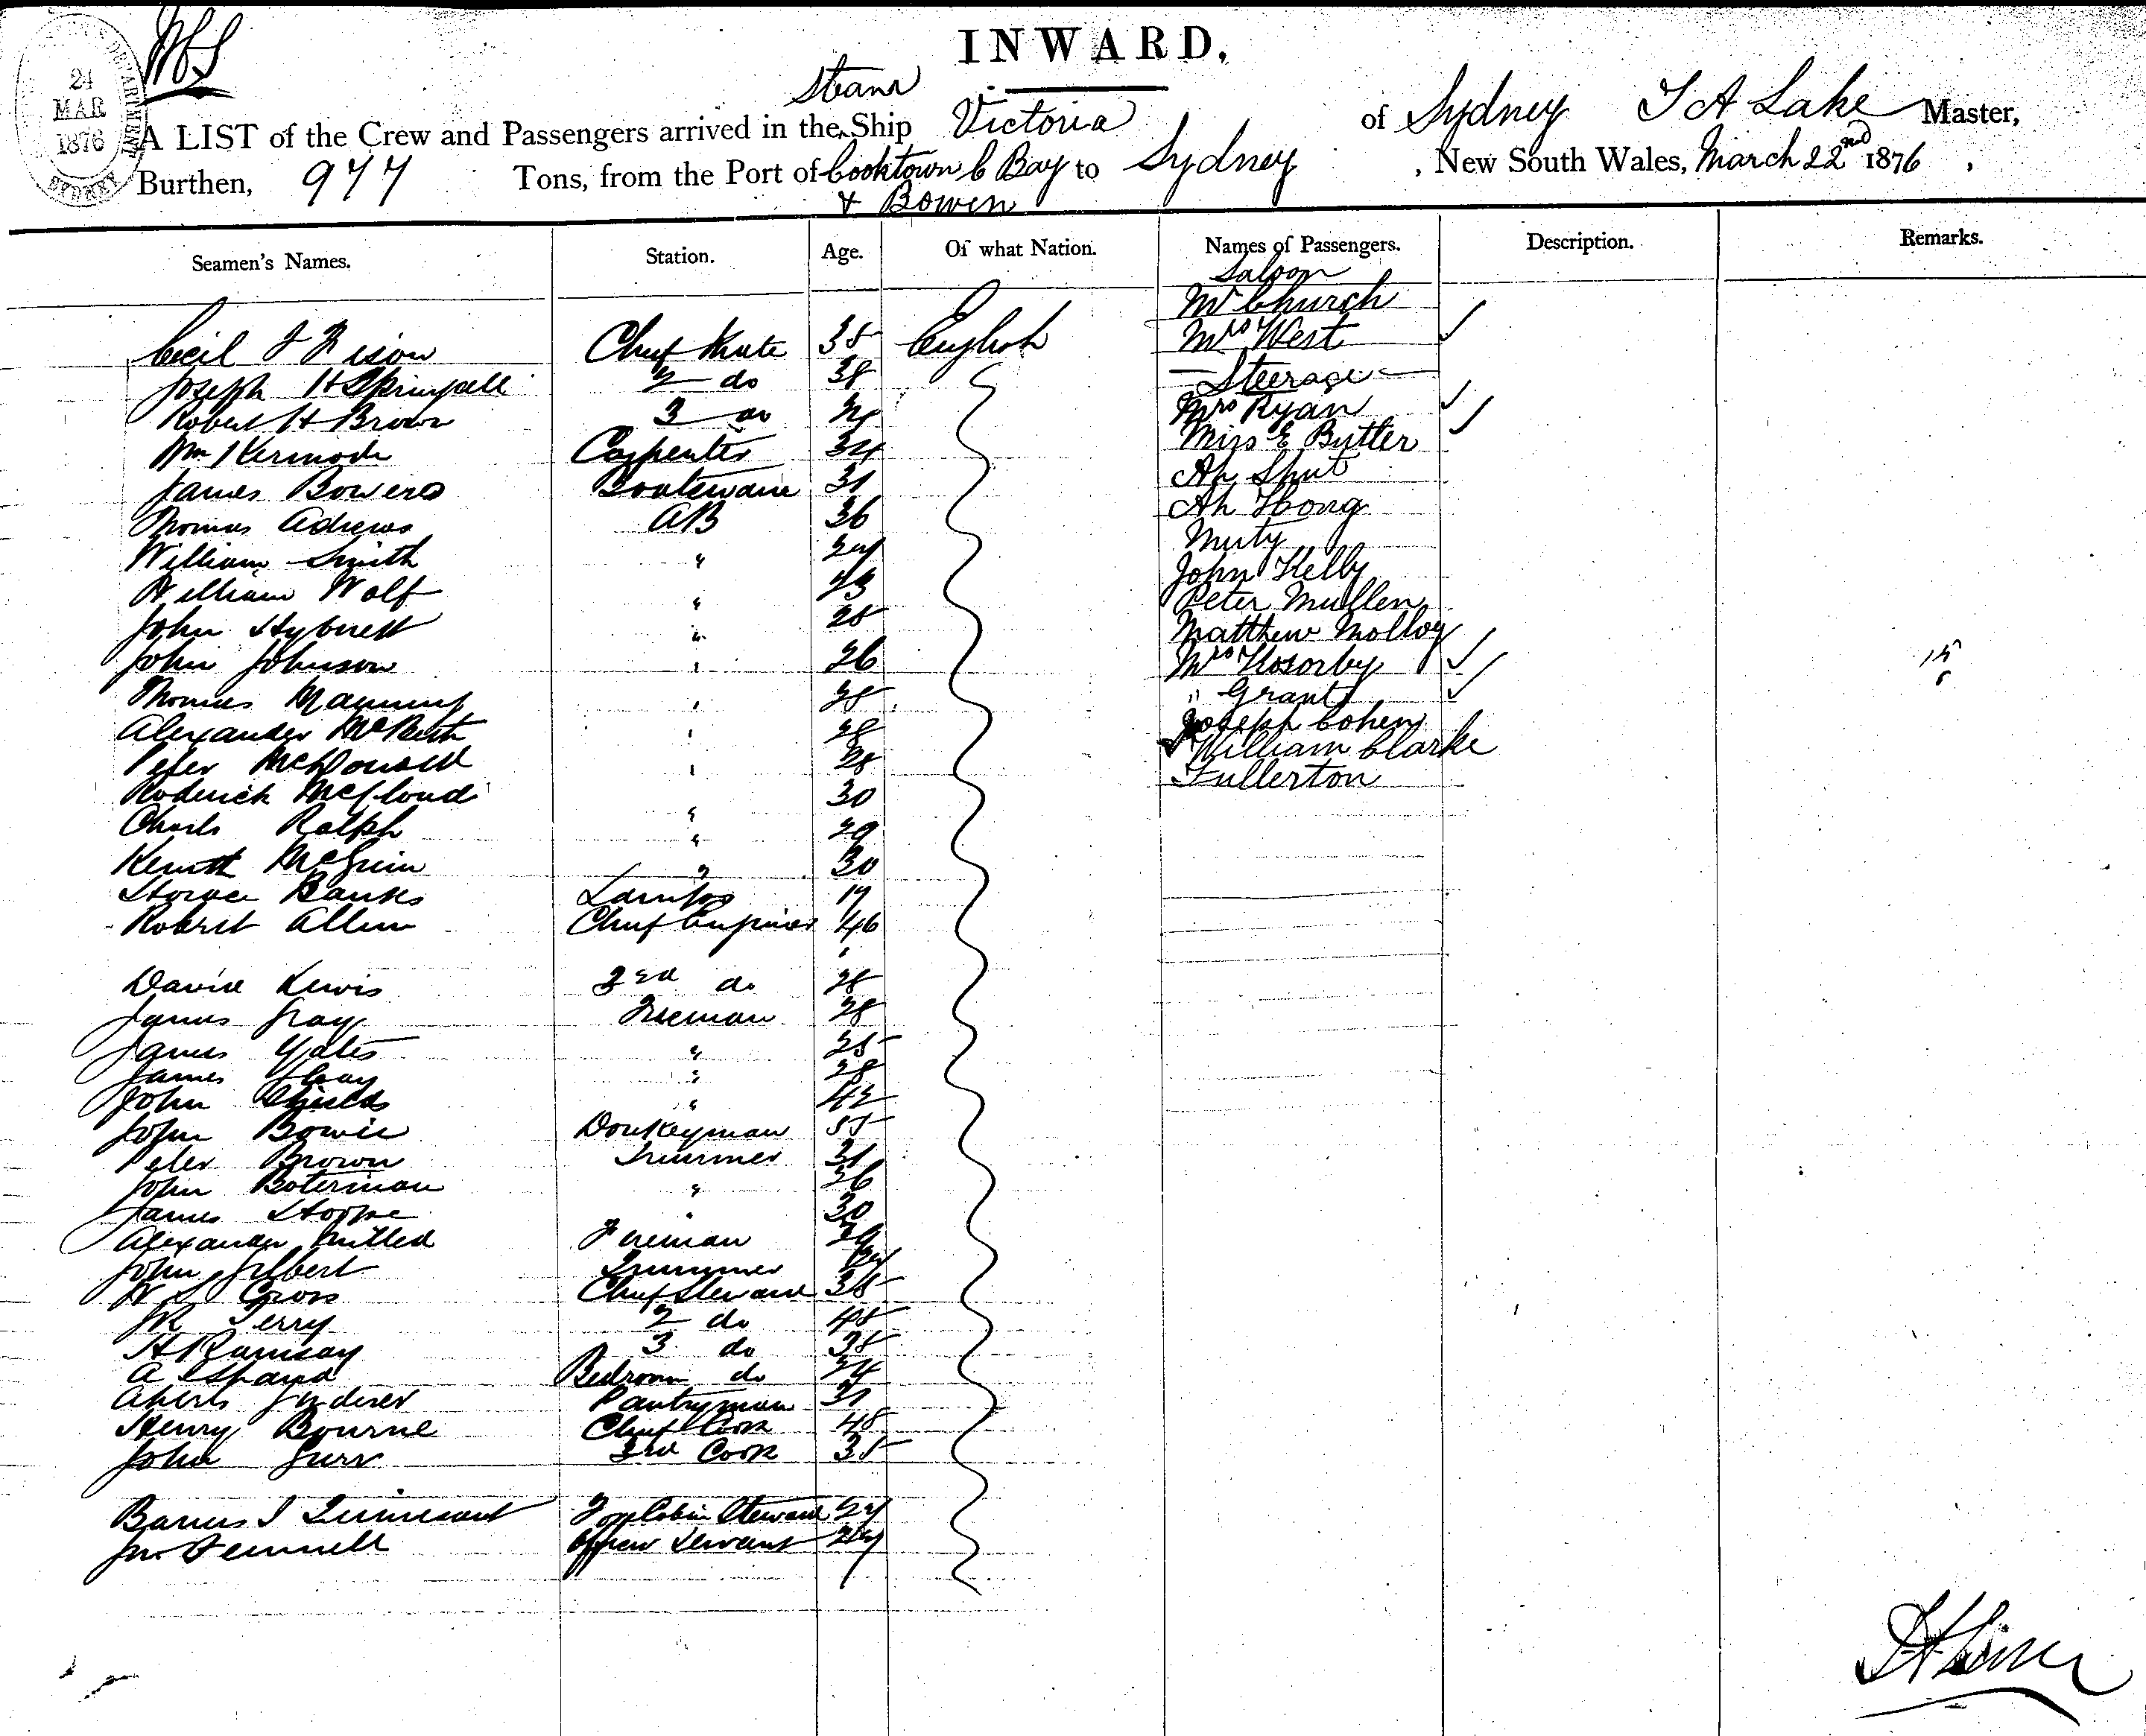 INWARD.
24
MAR
1876
SYDNEY
DEPARTMENT
Steam
A LIST of the Crew and Passengers arrived in the Ship Victoria of Sydney T A Lake Master,
Burthen, 977 Tons, from the Port of Cooktown C Bay to Sydney , New South Wales, March 22nd 1876 ,
& Bowen
Seamen's Names. Station. Age. Of what Nation. Names of Passengers. Description. Remarks.
Saloon
Mr Church
Cecil Chief Mate 35 English Mrs West ✓
Joseph H Springall 2 do 38 Steerage
Robert H Brown 3 do Mrs Ryan ✓
Wm Kermode Carpenter 34 Miss E Butler ✓
James Bowers Boatswain 31 Ah Shut
Thomas Adrews AB 36 Ah Hong
William Smith " Muty
William Wolf " 43 John Kelly
John " 28 Peter Mullen
John Johnson " 26 Matthew Molloy
Thomas Manning " 28 Mrs ✓
Alexander " 28 " Grant ✓
Peter McDonald " 28 Joseph Cohen
Roderick McCloud 30 William Clarke
Charls Ralph " 29 Fullerton
McGuin " 30
Banks Lamps 17
Robert Allen Chief Engineer 46
David Lewis 3rd do 28
James Gray Fireman 28
James Yates " 25
James " 28
John Shields " 42
John Bowie Donkeyman 55
Peter Brown Trimmer 31
John Boterman " 36
James " 30
Alexander Fireman 29
John Gilbert Trimmer
W S Cross Chief Steward 38
Jk Perry 2 do 48
H Ramsay 3 do 38
A Bedroom do 24
Pantryman 31
Henry Bourne Chief Cook 48
John Gurr 3rd Cook 35
Fore Cabin Steward
Jn Fennell Servant
15